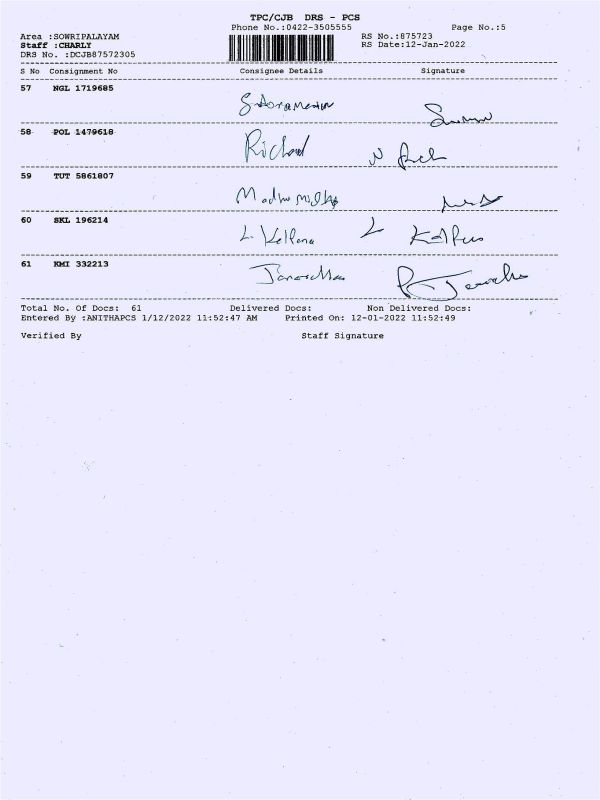 TPC/CJB DRS - PCS
Phone No.:0422-3505555 Page No.:5
Area :SOWRIPALAYAM RS No.:875723
Staff :CHARLY RS Date:12-Jan-2022
DRS No. :DCJB87572305
S No Consignment No Consignee Details Signature
57 NGL 1719685
58 POL 1479618 Richard
59 TUT 5861807
60 SKL 196214 L
61 KMI 332213
Total No. Of Docs: 61 Delivered Docs: Non Delivered Docs:
Entered By :ANITHAPCS 1/12/2022 11:52:47 AM Printed On: 12-01-2022 11:52:49
Verified By Staff Signature